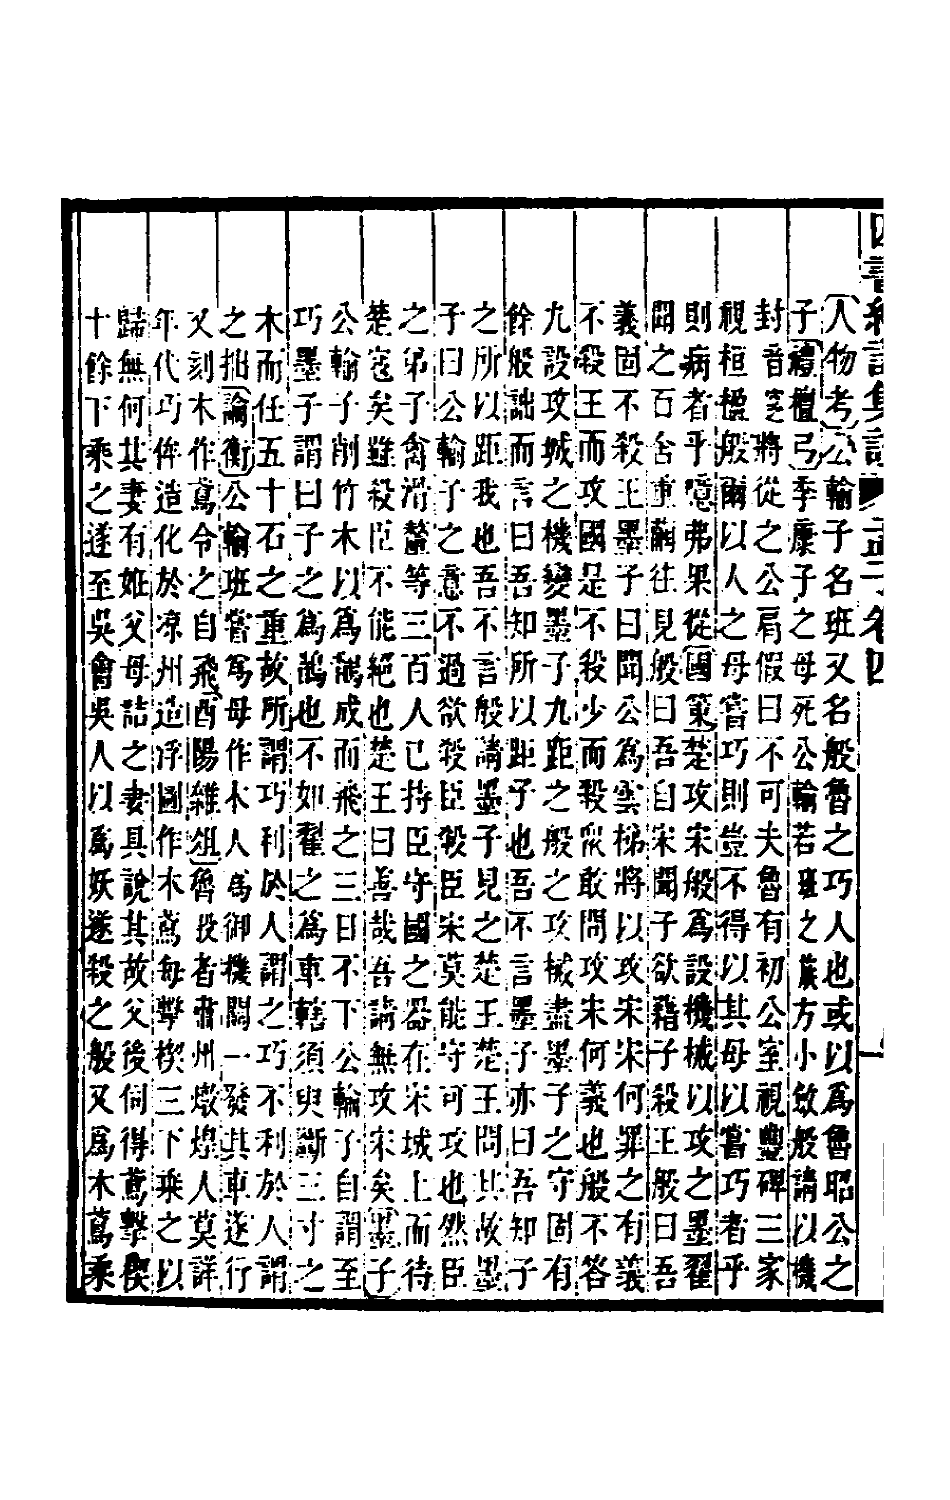 人物考公輸子名班又名般魯之巧人也或以爲魯昭公之
子禮檀弓季康子之母死公輸若方小斂般請以機
封將從之公肩假曰不可夫魯有初公室視豐碑三家
視桓楹般爾以人之母嘗巧則豈不得以其母以嘗巧者乎
則病者乎噫弗果從國策楚攻宋般爲設機械以攻之墨翟
聞之百舍重繭往見般曰吾自宋聞子欲藉子殺王般曰吾
義固不殺王墨子曰聞公爲雲梯將以攻宋宋何罪之有義
不殺王而攻國是不殺少而殺眾敢問攻宋何義也般不答
九設攻城之機變墨子九距之般之攻械盡墨子之守固有
餘般詘而言曰吾知所以距子也吾不言墨子亦曰吾知子
之所以距我也吾不言般請墨子見之楚王楚王問其故墨
子曰公輸子之意不過欲殺臣殺臣宋莫能守可攻也然臣
之弟子禽滑釐等三百人已持臣守國之器在宋城上而待
楚寇矣雖殺臣不能絕也楚王曰善哉吾請無攻宋矣墨子
公輸子削竹木以爲鵲成而飛之三日不下公輸子自謂至
巧墨子謂曰子之爲鵲也不如翟之爲車轄須臾斲三寸之
木而任五十石之重故所謂巧利於人謂之巧不利於人謂
之拙論衡公輸班嘗爲母作木人爲御機關一發其車遂行
又刻木作鳶令之自飛酉陽雜俎魯般者肅州燉煌人莫詳
年代巧侔造化於凉州造浮圖作木鳶每擊楔三下乘之以
歸無何其妻有姙父母詰之妻具說其故父後伺得鳶擊楔
十餘下乘之遂至吳會吳人以爲妖遂殺之般又爲木鳶乘